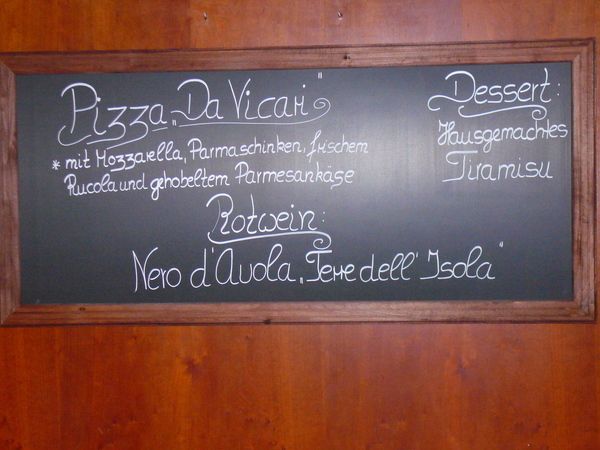 Pizza „Da Vicari“
* mit Mozzarella, Parmaschinken, frischem
Rucola und gehobeltem Parmesankäse
Rotwein:
Nero d'Avola „Terre dell' Isola“
Dessert:
Hausgemachtes
Tiramisu